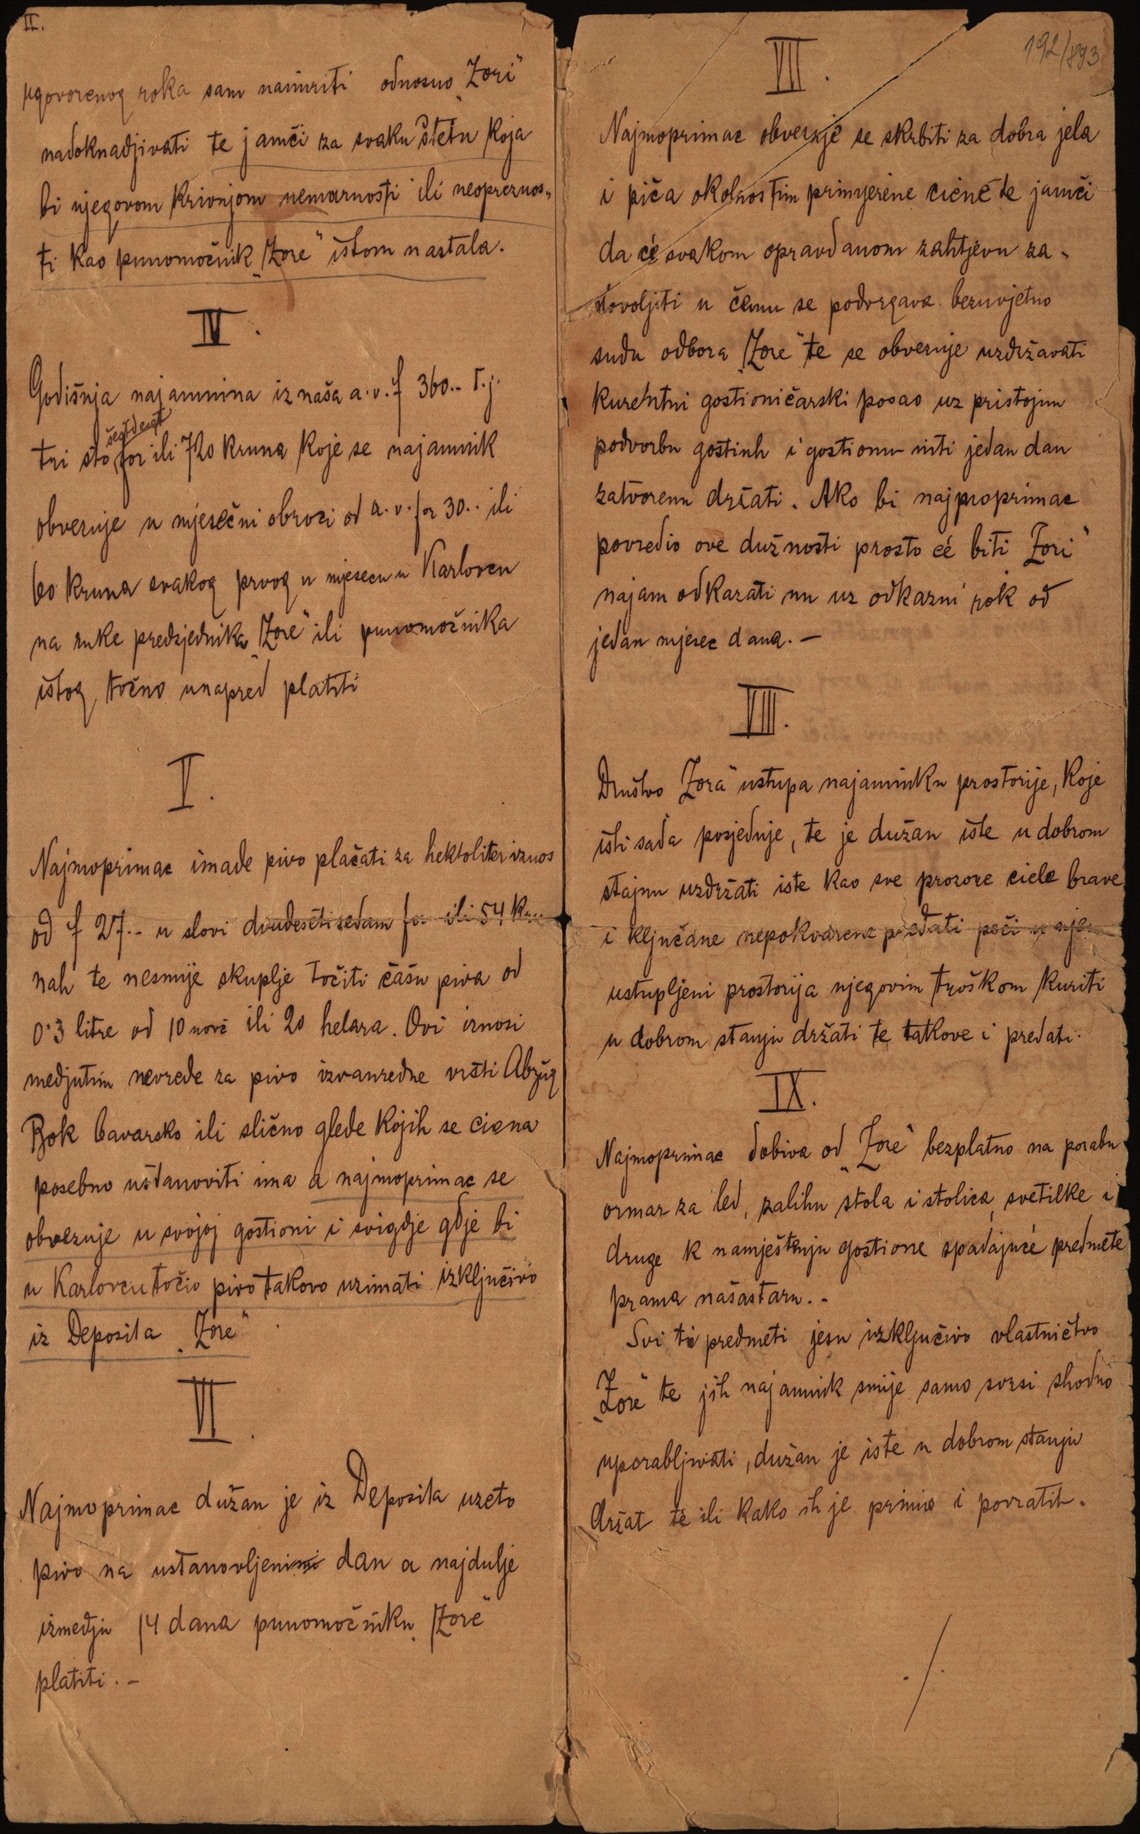 II.
ugovorenog roka sam namiriti odnosno „Zori“
nadoknadjivati te jamči za svaku štetu koja
bi njegovom krivnjom nemarnosti ili neopreznos-
ti kao punomoćnik „Zore“ istom nastala.
IV.
Godišnja najamnina iznaša a.v. f 360.– t.j.
tri sto šestdeset for ili 720 kruna koje se najamnik
obvezuje u mjesečni obroci od a.v. for 30.. ili
60 kruna svakog prvog u mjesecu u Karlovcu
na ruke predsjednika „Zore“ ili punomoćnika
istog točno unapred platiti
V.
Najmoprimac imade pivo plačati za hektoliter iznos
od f 27.– u slovi dvadesetisedam for ili 54 kru
nah te nesmije skuplje točiti čašu piva od
0·3 litre od 10 novč ili 20 helara. Ovi iznosi
medjutim nevrede za pivo izvanredne vrsti Abzug
Bok bavarsko ili slično glede kojih se ciena
posebno ustanoviti ima a najmoprimac se
obvezuje u svojoj gostioni i svigdje gdje bi
u Karlovcu točio pivo takovo uzimati izključivo
iz Deposita „Zore“
VI.
Najmoprimac dužan je iz Deposita uzeto
pivo na ustanovljeni dan a najdulje
izmedju 14 dana punomoćniku „Zore“
platiti.–
192/893
VII.
Najmoprimac obvezuje se skrbiti za dobra jela
i piča okolnostim primjerene ciene te jamči
da će svakom opravdanom zahtjevu za-
dovoljiti u čemu se podvrgava bezuvjetno
sudu odbora „Zore“ te se obvezuje uzdržavati
kurentni gostioničarski posao uz pristojnu
podvorbu gostinh i gostionu niti jedan dan
zatvorenu držati. Ako bi najmoprimac
povredio ove dužnosti prosto će biti „Zori“
najam odkazati mu uz odkazni rok od
jedan mjesec dana.–
VIII.
Družtvo „Zora“ ustupa najamniku prostorije, koje
isti sada posjeduje, te je dužan iste u dobrom
stajnu uzdržati iste kao sve prozore ciele brave
i ključane nepokvarene predati peći u njem
ustupljeni prostorija njegovim troškom kuriti
u dobrom stanju držati te takove i predati.
IX.
Najmoprimac dobiva od „Zore“ bezplatno na porabu
ormar za led, zalihu stola i stolica, svetilke i
druge k namještenju gostione spadajuće predmete
prama našastaru..
Svi ti predmeti jesu izključivo vlastničtvo
„Zore“ te jih najamnik smije samo svrsi shodno
uporabljivati, dužan je iste u dobrom stanju
držat te ili kako ih je primio i povratit.
./.